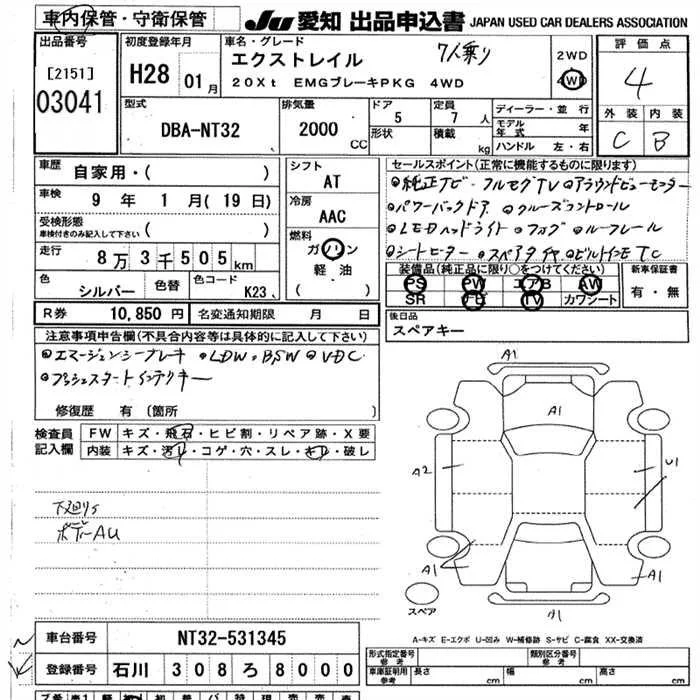 車内保管・守衛保管
JU 愛知 出品申込書 JAPAN USED CAR DEALERS ASSOCIATION
出品番号
[2151]
03041
初度登録年月
H28 01月
車名・グレード
エクストレイル 7人乗り
20Xt EMGブレーキPKG 4WD
2WD
4WD
評価点
4
外装 内装
C B
型式
DBA-NT32
排気量
2000 CC
ドア
5
形状
定員
7 人
積載 kg
ディーラー・並行
モデル年式 年
ハンドル 左・右
車歴 自家用・( )
車検 9 年 1 月 ( 19 日)
受検形態
車検付きのみ記入して下さい ( )
走行 8万3千505km
色 シルバー 色替 色コード K23
シフト
AT
冷房
AAC
燃料
ガソリン
軽・油
セールスポイント(正常に機能するものに限ります)
純正TV・フルセグTV アラウンドビューモニター
パワーバックドア クルーズコントロール
LEDヘッドライト フォグ ルーフレール
シートヒーター スペアタイヤ ビルトインETC
装備品(純正品に限り○をつけてください)
PS PW エアB AW
SR ナビ TV カワシート
新車保証書
有・無
R券 10,850 円 名変通知期限 月 日
後日品
スペアキー
注意事項申告欄(不具合内容等は具体的に記入して下さい)
エマージェンシーブレーキ LDW・BSW VDC
プッシュスタートインテリキー
修復歴 有 〔箇所
検査員記入欄
FW キズ・飛石・ヒビ割・リペア跡・X要
内装 キズ・汚レ・コゲ・穴・スレ・キレ・破レ
下廻りS
ボデーAU
A1
A1
A2
U1
A1
A1
A1
スペア
A-キズ E-エクボ U-凹み W-補修跡 S-サビ C-腐食 XX-交換済
車台番号 NT32-531345
登録番号 石川 308 ろ 8000
形式指定番号 参考
類別区分番号 参考
車庫証明用 参考 長さ cm 幅 cm 高さ cm